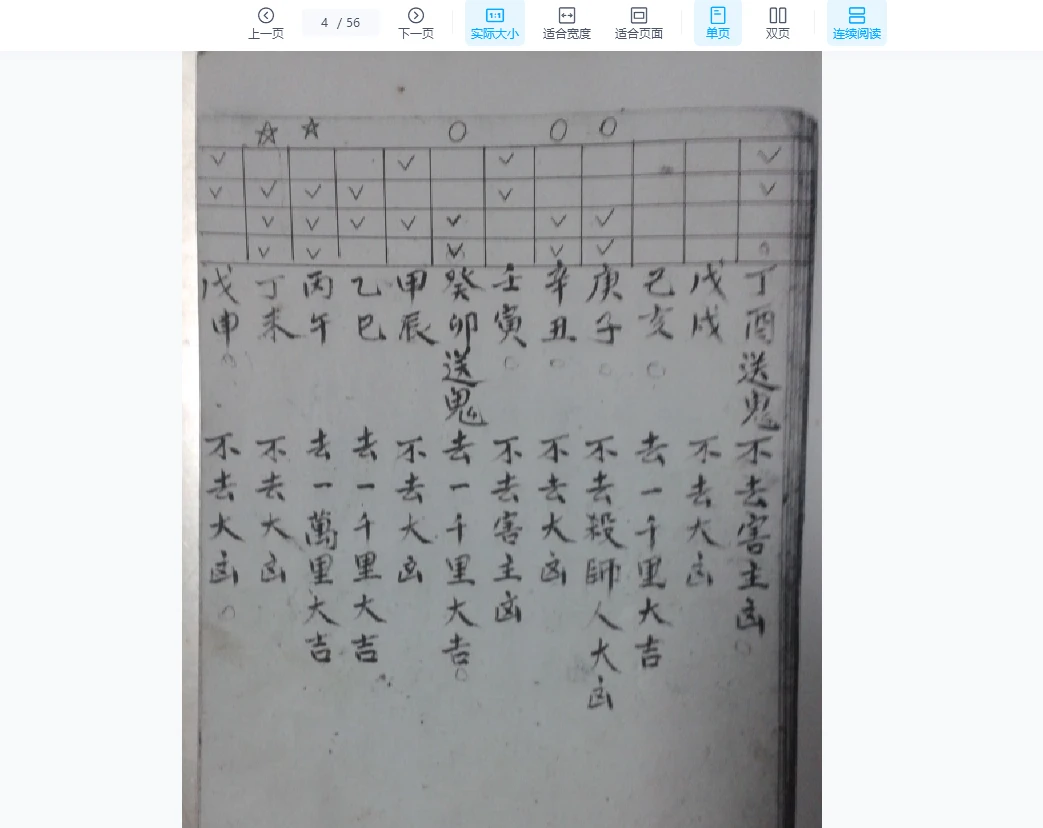 上一页
4 / 56
下一页
1:1
实际大小
适合宽度
适合页面
单页
双页
连续阅读
丁酉送鬼不去害主凶
戊戌不去大凶
己亥去一千里大吉
庚子不去殺師人大凶
辛丑不去大凶
壬寅不去害主凶
癸卯送鬼去一千里大吉
甲辰不去大凶
乙巳去一千里大吉
丙午去一萬里大吉
丁未不去大凶
戊申不去大凶